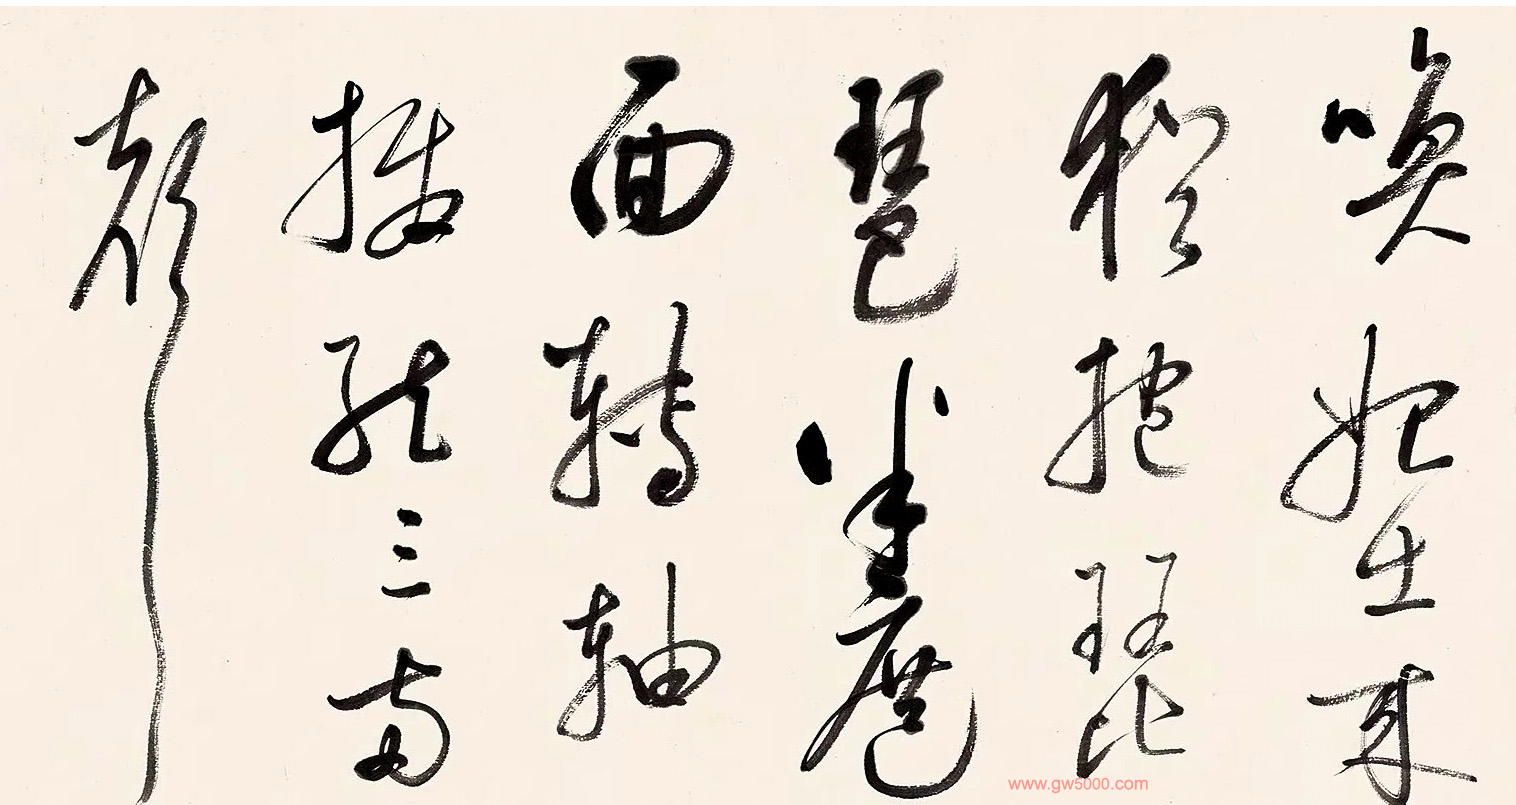 唤始出来
犹抱琵
琶半遮
面转轴
拨弦三两
声
www.gw5000.com